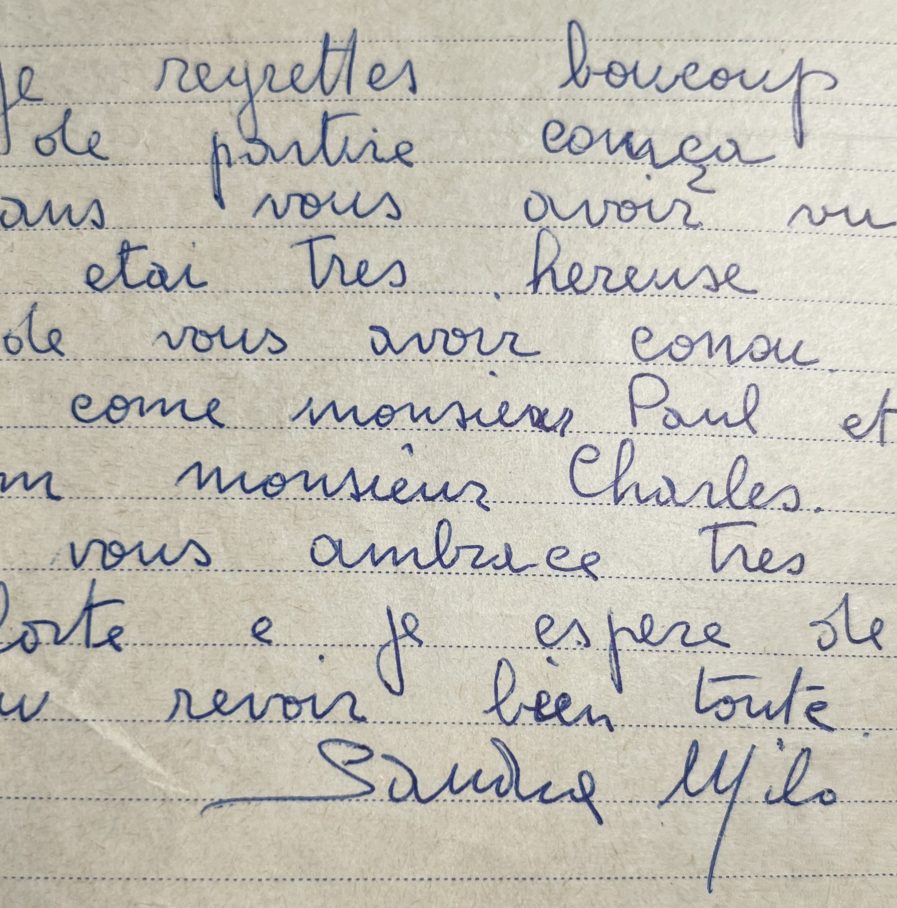 je regrettes boucoup
de partire comça
ans vous avoir vu
etai tres hereuse
de vous avoir conou.
come monsieur Paul et
m monsieur Charles.
vous ambrace tres
forte e je espere de
revoir bien toute.
Sandra Milo